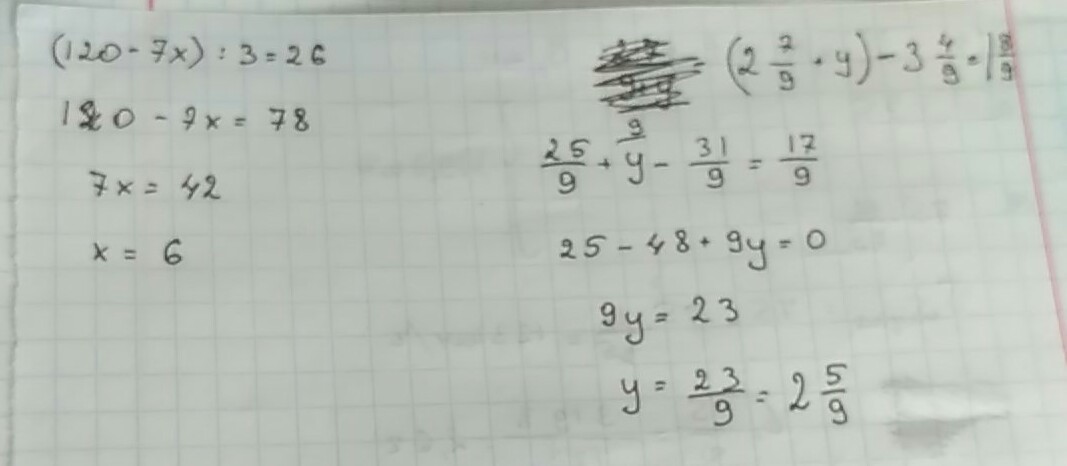 (120 - 7x) : 3 = 26
120 - 7x = 78
7x = 42
x = 6
(2 7/9 + y) - 3 4/9 = 1 8/9
25/9 + y - 31/9 = 17/9
9
25 - 48 + 9y = 0
9y = 23
y = 23/9 = 2 5/9